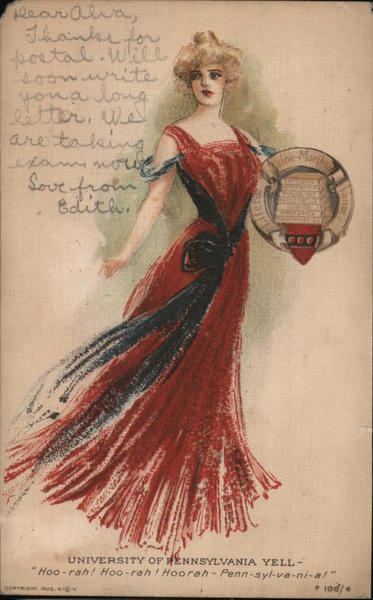 Dear Alva,
Thanks for
postal. Will
soon write
you a long
letter. We
are taking
exams now
Love from
Edith.
UNIVERSITY OF PENNSYLVANIA YELL-
"Hoo-rah! Hoo-rah! Hoorah-Penn-syl-va-ni-a!"
COPYRIGHT, 1905, N.
P 100/4